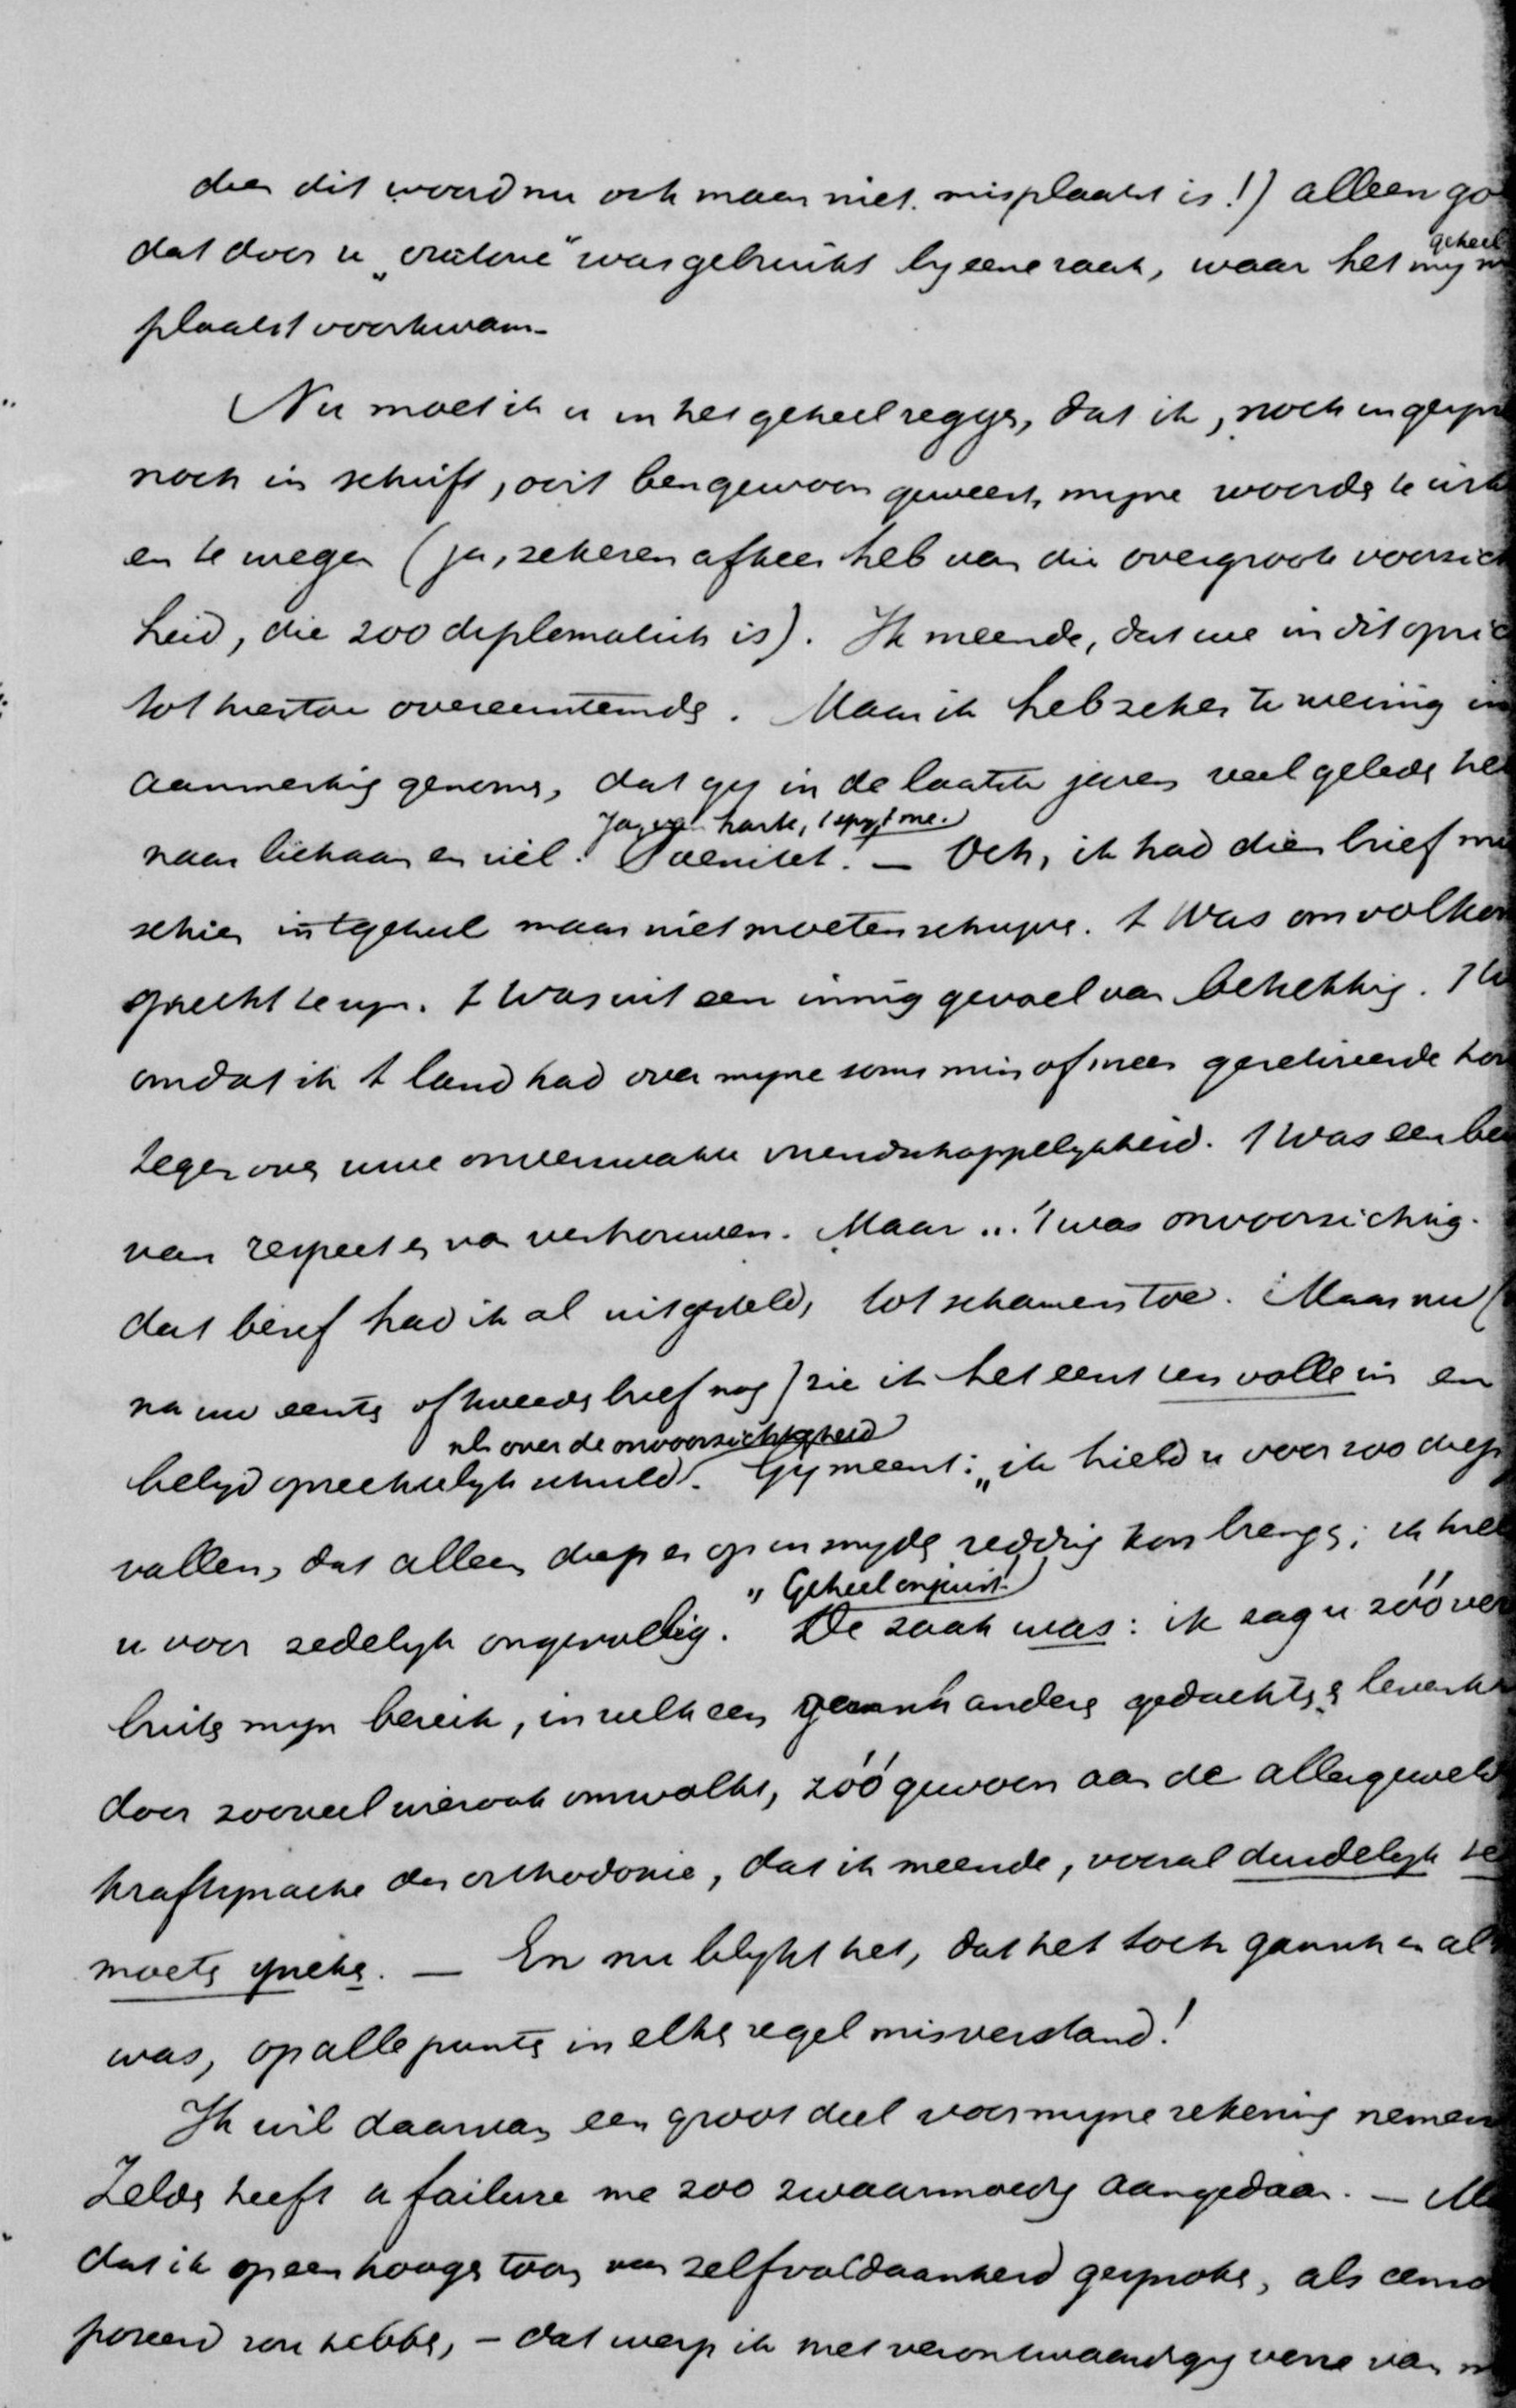 dien dit woord nu ook maar niet misplaatst is!) alleen go
geheel
dat door u „oratorie" was gebruikt by eene zaak, waar het my m
plaatst voorkwam.
Nu moet ik u in het geheel zeggen, dat ik, noch in gespre
noch in schrift, ooit ben gewoon geweest, myne woorden te
en te wegen (ja, zekeren afkeer heb van die overgroote voorzich
heid, die zoo diplomatiek is). Ik meende, dat we in dit opzic
tot hiertoe overeenstemden. Maar ik heb zeker te weinig in
aanmerking genomen, dat gy in de laatste jaren veel geleden he
Ja, van harte, 't spyt me.
naar lichaam en ziel. Poenitet. — Och, ik had dien brief mis
schien in 't geheel maar niet moeten schryven. 't Was om volkom
oprecht te zyn. 't Was uit een innig gevoel van betrekking. 't W
omdat ik 't land had over myne soms min of meer geretireerde hou
tegenover uwe onverzwakte vriendschappelykheid. 't Was een be
van respect en van vertrouwen. Maar ... 't was onvoorzichtig.
dat besef had ik al uitgedeeld, tot schamens toe. Maar nu (
na uw eersten of tweeden brief nog) zie ik het eerst ten volle in en
nl. over de onvoorzichtigheid
belyd oprechtelyk schuld. Gy meent: „ik hield u voor zoo diep
vallen, dat alleen diep er op insnyden redding kon brengen; ik hiel
" Geheel onjuist!
u voor zedelyk ongevoelig. De zaak was: ik zag u zóó ver
buiten myn bereik, in zulk een gansch andere gedachten
door zooveel wierook omwolkt, zóó gewoon aan de allergeweld
kraftsprache der orthodoxie, dat ik meende, vooral duidelyk te
moeten spreken. — En nu blykt het, dat het toch gansch en al
was, op alle punten in elken regel misverstand!
Ik wil daarvan een groot deel voor myne rekening nemen
Zelden heeft a failure me zoo zwaarmoedig aangedaan. — Ma
dat ik op een hoogen toon van zelfvoldaanheid gesproken, als
poseerd zou hebben, — dat werp ik met verontwaardiging verre van m